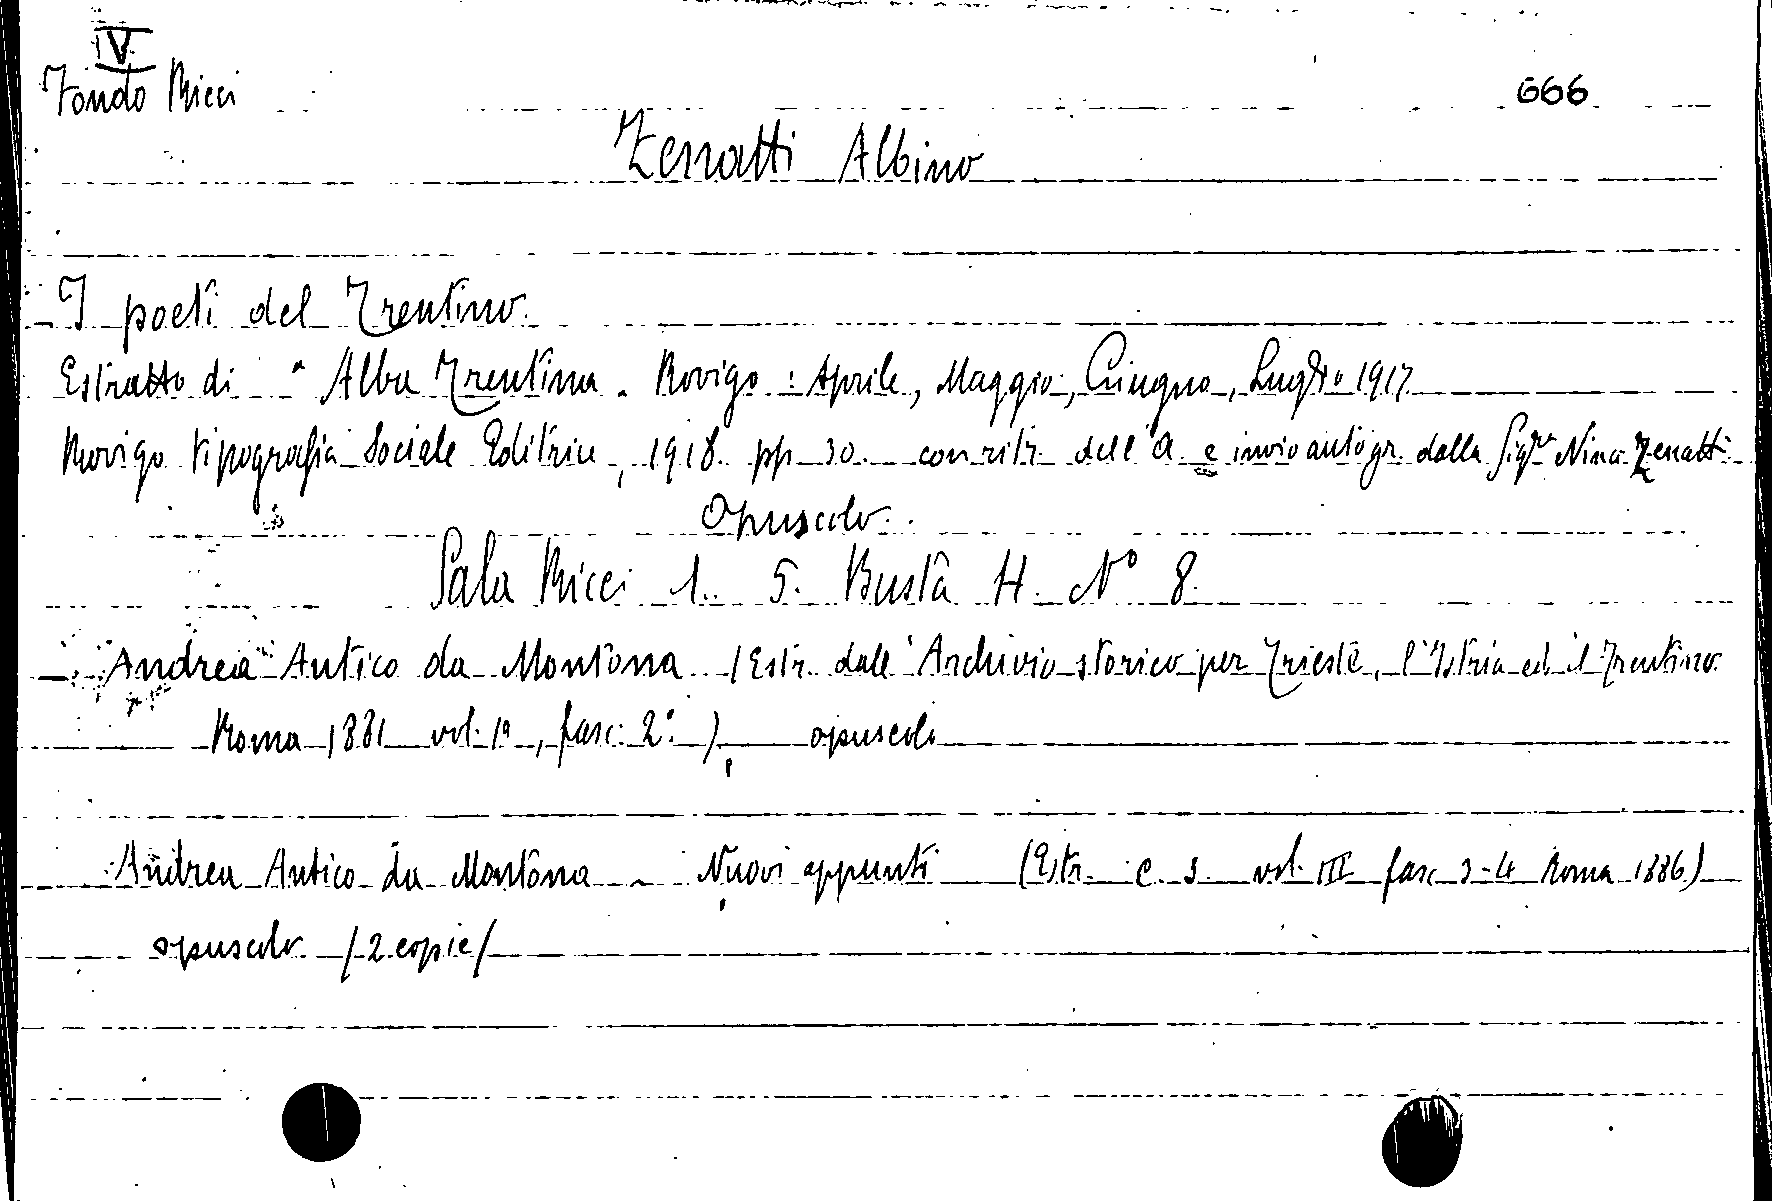 IV
Fondo Ricci 666
Zenatti Albino
I poeti del Trentino.
Estratto di " Alba Trentina. Rovigo: Aprile, Maggio, Giugno, Luglio 1917
Rovigo Tipografia Sociale Editrice, 1918. pp. 30. con ritr. dell'A. e invio autogr. della Sigra Nina Zenatti
Opuscolo.
Sala Ricci 1. 5. Busta H. N° 8.
Andrea Antico da Montona (Estr. dall'Archivio storico per Trieste, l'Istria ed il Trentino.
Roma 1881 vol. 1°, fasc. 2°.) opuscolo
Andrea Antico da Montona - Nuovi appunti (Estr. c. s. vol. III fasc 3-4 Roma 1886)
opuscolo. (2 copie)